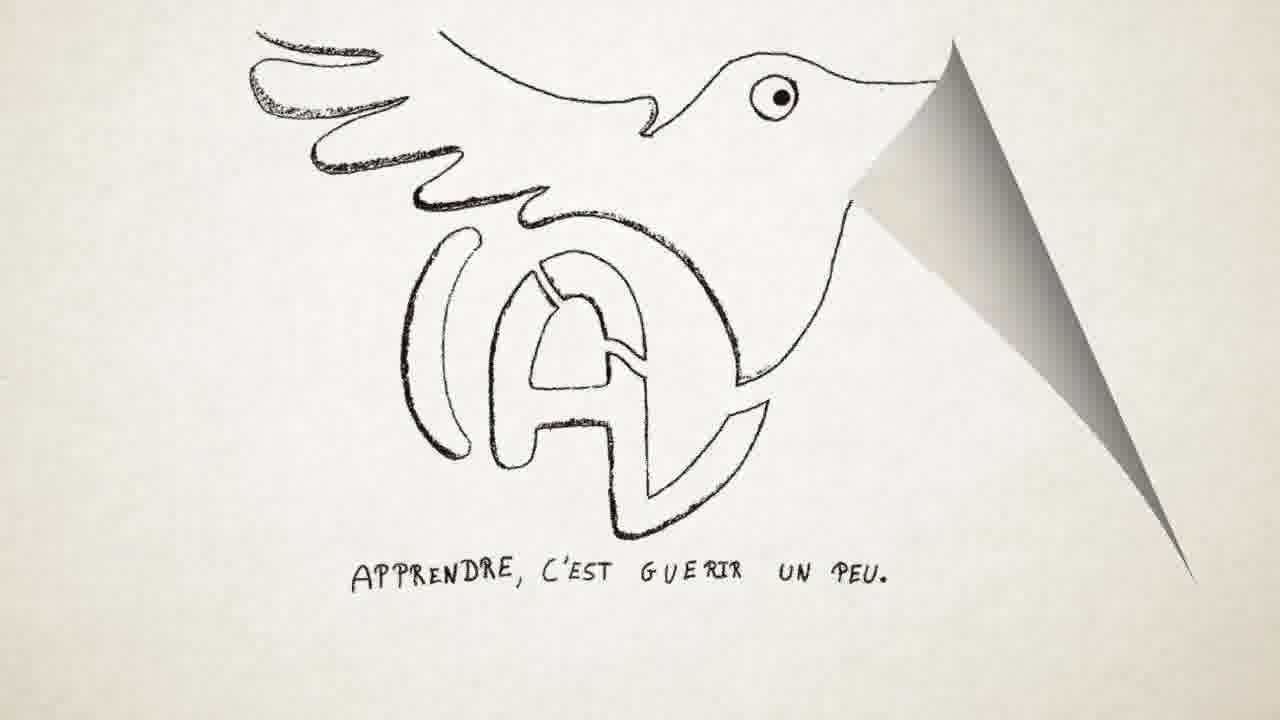 APPRENDRE, C'EST GUERIR UN PEU.